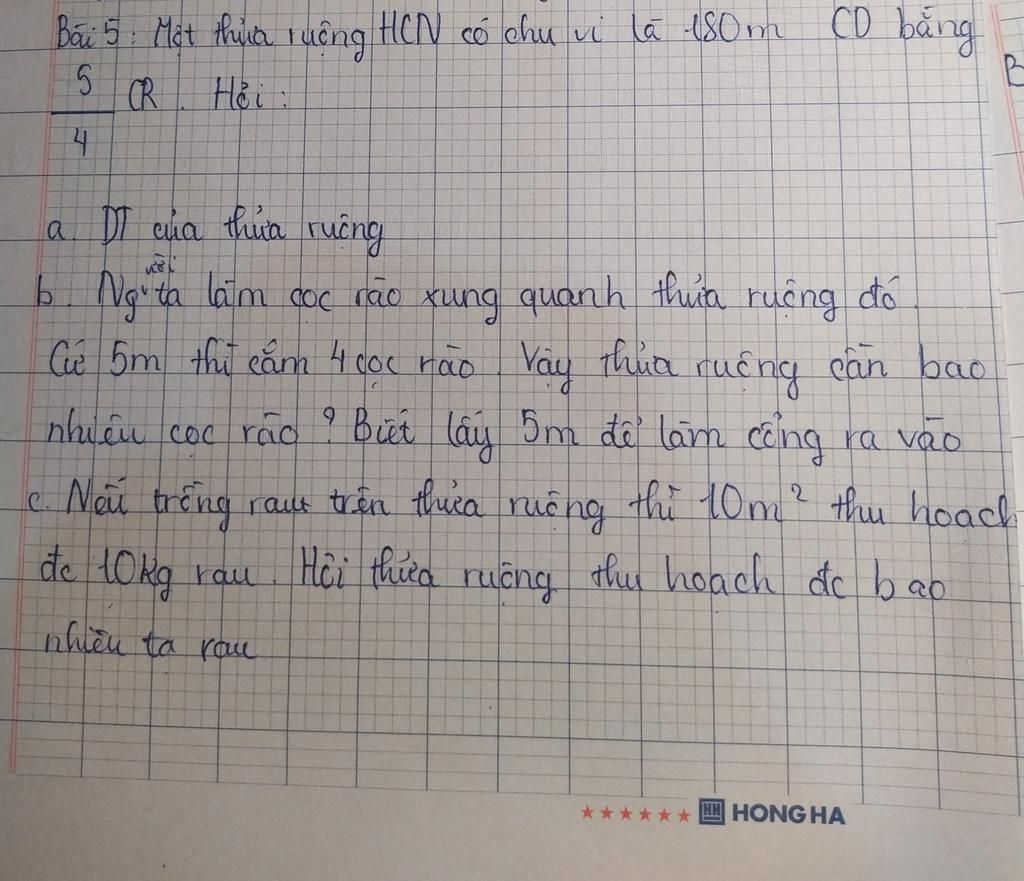 Bài 5: Một thửa ruộng HCN có chu vi là 180m CD bằng
5
4
CR. Hỏi:
a. DT của thửa ruộng
b. Người ta làm cọc rào xung quanh thửa ruộng đó.
Cứ 5m thì cắm 4 cọc rào. Vậy thửa ruộng cần bao
nhiêu cọc rào? Biết lấy 5m để làm cổng ra vào
c. Nếu trồng rau trên thửa ruộng thì 10m² thu hoạch
đc 10kg rau. Hỏi thửa ruộng thu hoạch đc bao
nhiêu tạ rau
HH HONG HA